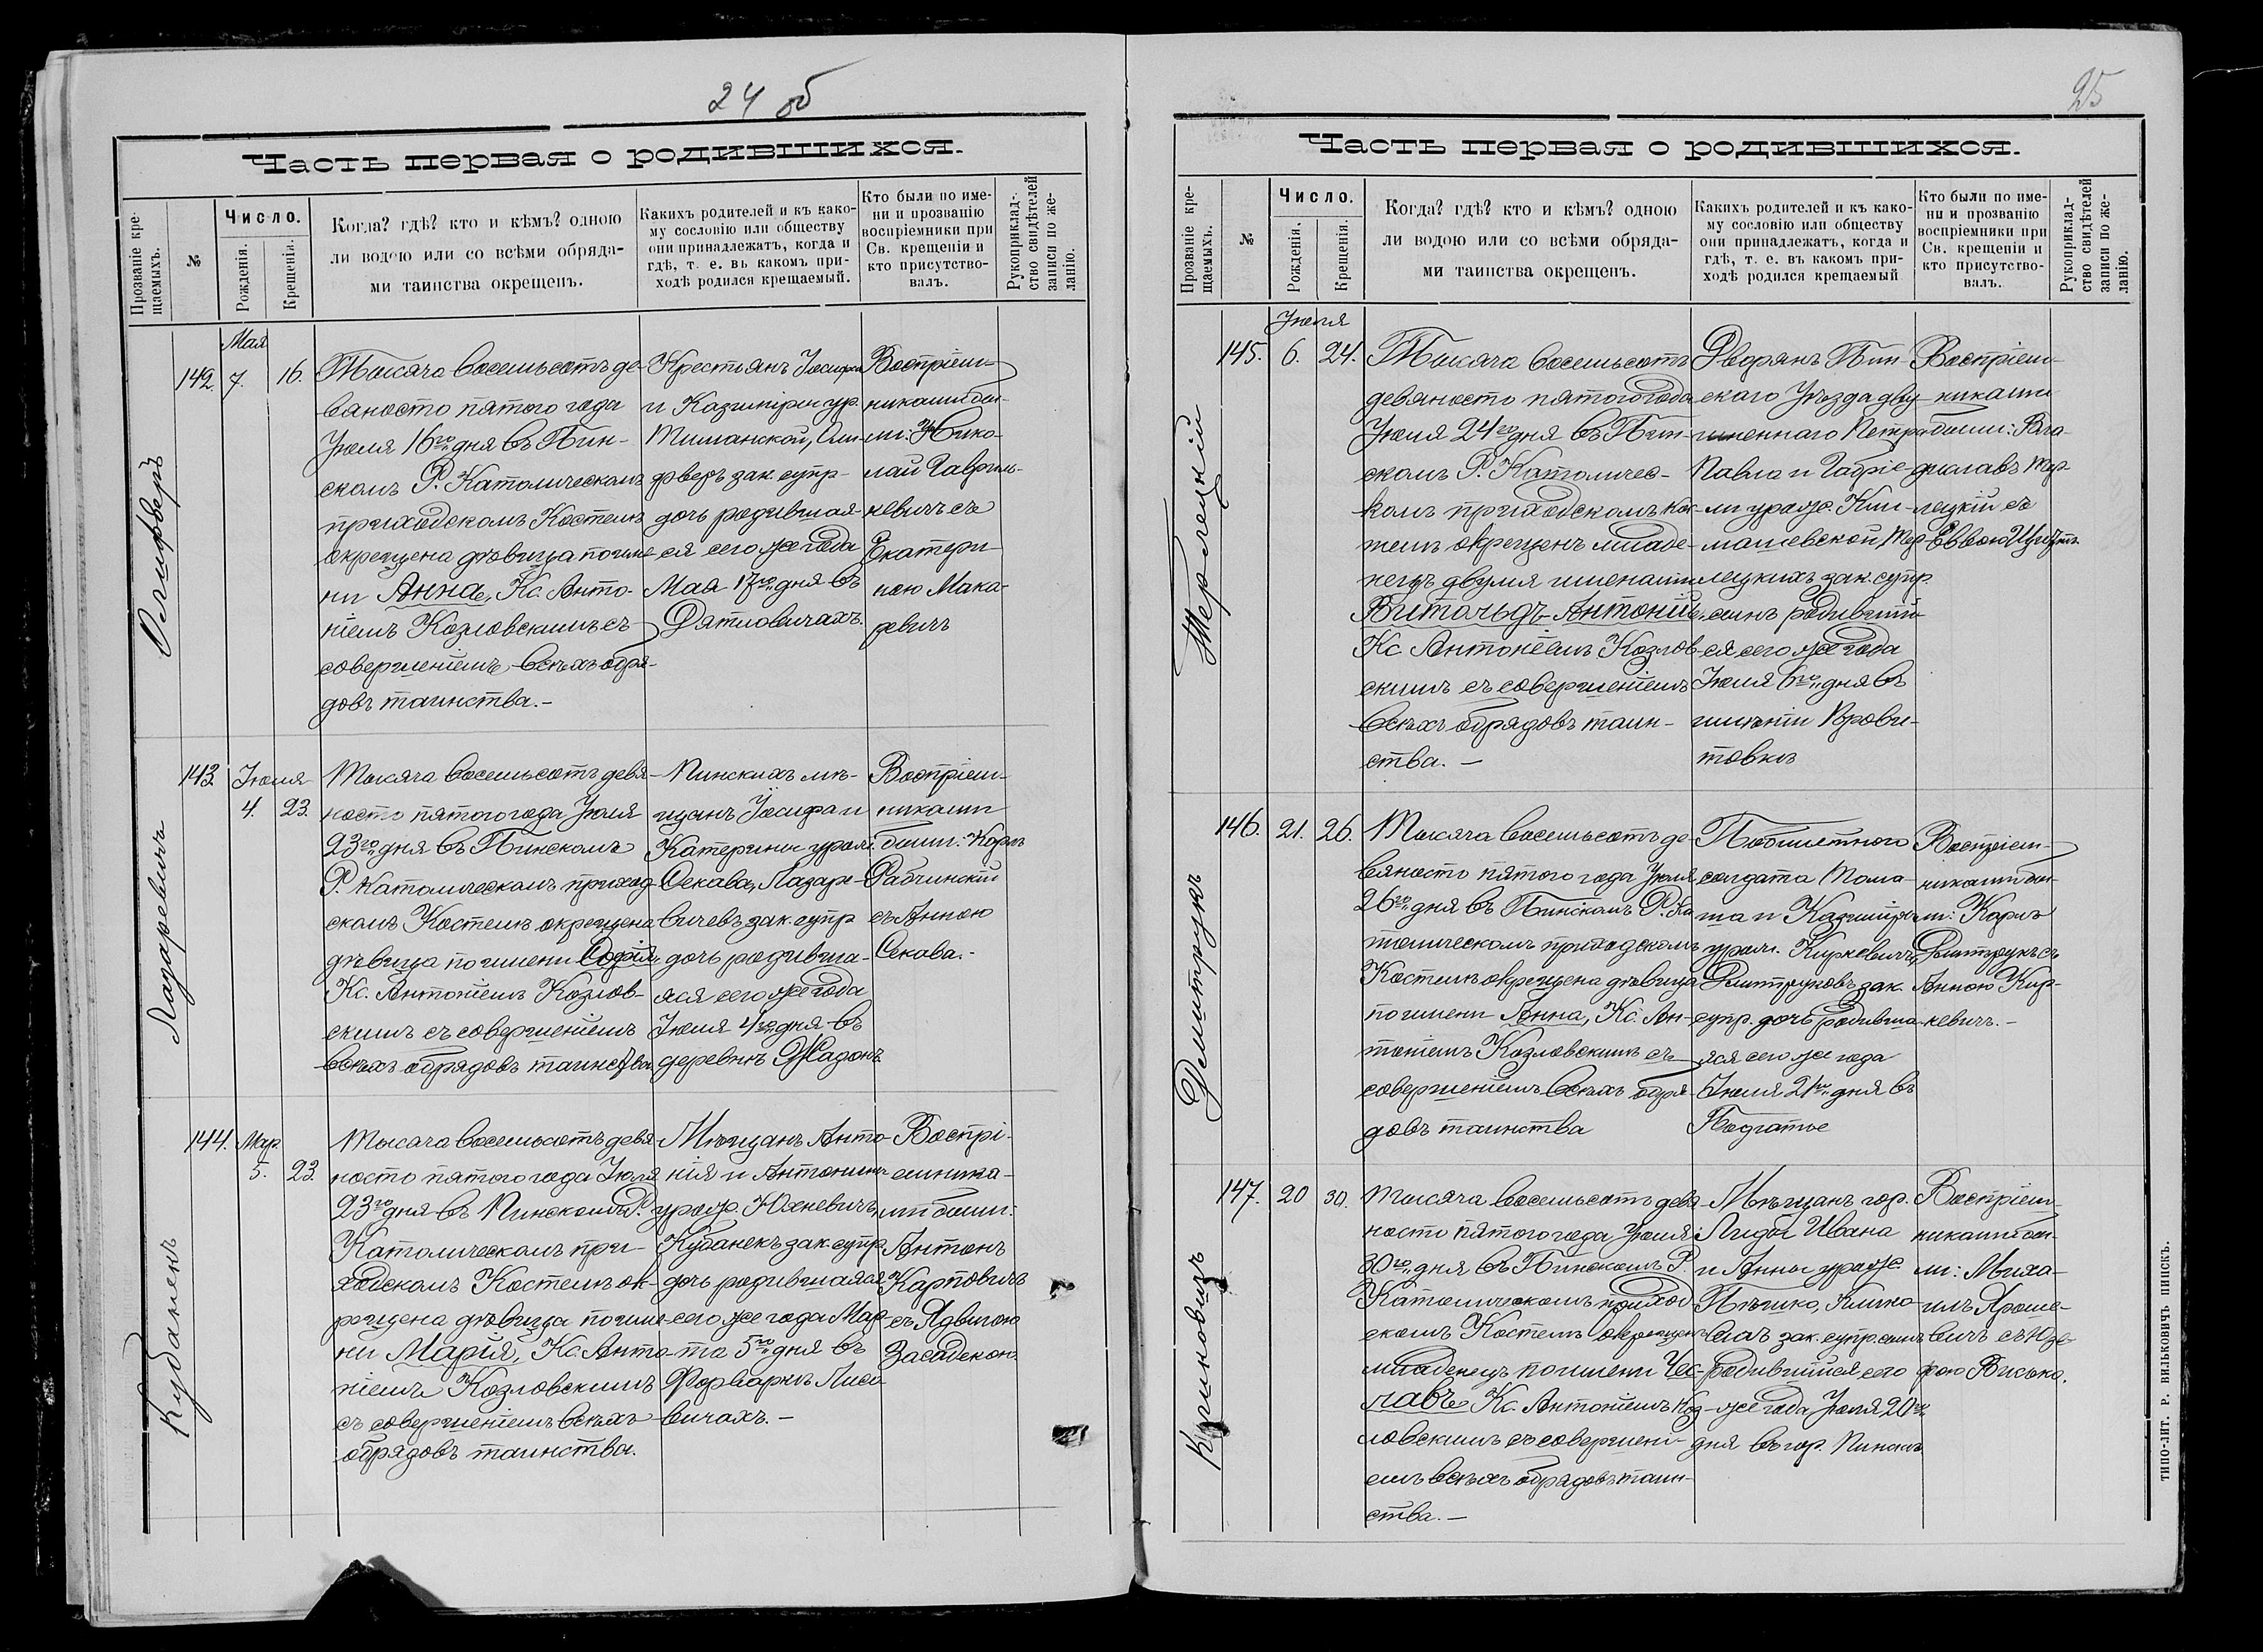 24 об
Часть первая о родившихся.
Прозваніе кре-
щаемыхъ.
№
Число.
Рожденія.
Крещенія.
Когда? гдѣ? кто и кѣмъ? одною
ли водою или со всѣми обряда-
ми таинства окрещенъ.
Какихъ родителей и къ како-
му сословію или обществу
они принадлежатъ, когда и
гдѣ, т. е. въ какомъ при-
ходѣ родился крещаемый.
Кто были по име-
ни и прозванію
воспріемники при
Св. крещеніи и
кто присутство-
валъ.
Рукоприклад-
ство свидѣтелей
записи по же-
ланію.
Мая
142 7. 16.
Тысяча восемьсотъ де-
вяносто пятого года
Іюля 16го дня въ Пин-
скомъ Р. Католическомъ
приходскомъ Костелѣ
окрещена дѣвица по име-
ни Анна, Кс. Анто-
ніемъ Козловскимъ съ
совершеніемъ всѣхъ обря-
довъ таинства.-
Крестьянъ Іосифа
и Казимиры ур.
Тиманской,
зак. супр-
дочь родившая-
ся сего же года
Мая дня въ
Дятловичахъ.
Воспріем-
никами бы-
ли: Нико-
лай Гавриль-
кевичъ съ
Екатери-
ною Мака-
ревичъ
Лазаревичъ
143. Іюля
4. 23.
Тысяча восемьсотъ девя-
носто пятого года Іюля
23го дня въ Пинскомъ
Р. Католическомъ приход-
скомъ Костелѣ окрещена
дѣвица по имени Софія,
Кс. Антоніемъ Козлов-
скимъ съ совершеніемъ
всѣхъ обрядовъ таинства
Пинскихъ мѣ-
щанъ Іосифа и
Катерины урож.
Секава, Лазаре-
вичевъ зак. супр
дочь родивша-
яся сего же года
Іюля 4го дня въ
деревнѣ
Воспріем-
никами
были: Карлъ
Рабчинскій
съ Анною
Секава.-
Кубанекъ
144. Мар.
5. 23.
Тысяча восемьсотъ девя-
носто пятого года Іюля
23го дня въ Пинскомъ Р.
Католическомъ при-
ходскомъ Костелѣ ок-
рещена дѣвица по име-
ни Марія, Кс. Анто-
ніемъ Козловскимъ
съ совершеніемъ всѣхъ
обрядовъ таинства.
Мѣщанъ Анто-
нія и Антонины
урож. Юхневичъ,
Кубанекъ зак. супр
дочь родившаяся
сего же года Мар-
та 5го дня въ
Форваркѣ Лисо-
вичахъ.-
Воспрі-
емника-
ми были:
Антонъ
Карповичъ
съ Ядвигою
25
Часть первая о родившихся.
Прозваніе кре-
щаемыхъ.
№
Число.
Рожденія.
Крещенія.
Когда? гдѣ? кто и кѣмъ? одною
ли водою или со всѣми обряда-
ми таинства окрещенъ.
Какихъ родителей и къ како-
му сословію или обществу
они принадлежатъ, когда и
гдѣ, т. е. въ какомъ при-
ходѣ родился крещаемый
Кто были по име-
ни и прозванію
воспріемники при
Св. крещеніи и
кто присутство-
валъ.
Рукоприклад-
ство свидѣтелей
записи по же-
ланію.
Терлецкій
Іюля
145. 6. 24.
Тысяча восемьсотъ
девяносто пятого года
Іюля 24го дня въ Пин-
скомъ Р. Католичес-
комъ приходскомъ Кос-
телѣ окрещенъ младе-
нецъ двумя именами
Витольдъ-Антоній,
Кс Антоніемъ Козлов-
скимъ съ совершеніемъ
всѣхъ обрядовъ таин-
ства.-
Дворянъ Пин-
скаго Уѣзда дву
именнаго Петра
Павла и Габріе-
ли урож. Кли-
машевской, Тер-
лецкихъ зак. супр.
сынъ родившій-
ся сего же года
Іюля 6го дня въ
имѣніи
Воспріем-
никами
были: Вла-
диславъ Тер-
лецкій съ
Еввою
Дмитрукъ
146. 21. 26.
Тысяча восемьсотъ де-
вяносто пятого года Іюля
26го дня въ Пинскомъ Р. Ка
толическомъ приходскомъ
Костелѣ окрещена дѣвица
по имени Анна, Кс. Ан-
тоніемъ Козловскимъ съ
совершеніемъ всѣхъ обря-
довъ таинства
Побилетного
солдата Тома-
ша и Казиміры
урож. Киркевичъ,
Дмитруковъ зак.
супр. дочь родивша-
яся сего же года
Іюля 21го дня въ
Подгатье
Воспріем-
никами бы-
ли: Карлъ
Дмитрукъ съ
Анною Кир-
кевичъ.-
Климовичъ
147. 20 30.
Тысяча восемьсотъ девя-
носто пятого года Іюля
30го дня въ Пинскомъ Р.
Католическомъ приход-
скомъ Костелѣ окрещенъ
младенецъ по имени Чес-
лавъ Кс. Антоніемъ Коз-
ловскимъ съ совершені-
емъ всѣхъ обрядовъ таин-
ства.-
Мѣщанъ гор.
Лиды Ивана
и Анны урож.
зак. супр. сынъ
родившійся сего
же года Іюля 20го
дня въ гор. Пинскѣ
Воспріем-
никами бы-
ли: Миха-
илъ Яроше-
вичъ съ Юзе-
фою Висько.
ТИПО-ЛИТ. Р. ВИЛЬКОВИЧЪ ПИНСКЪ.